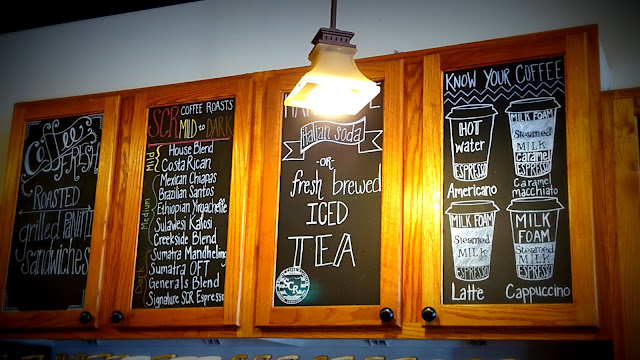 Coffee
FRESH
ROASTED
grilled PANINI
Sandwiches
SCR
COFFEE ROASTS
MILD to DARK
Mild
Medium
Dark
House Blend
Costa Rican
Mexican Chiapas
Brazilian Santos
Ethiopian Yirgacheffe
Sulawesi Kalosi
Creekside Blend
Sumatra Mandheling
Sumatra OFT
Generals Blend
Signature SCR Espresso
Italian Soda
-or-
fresh brewed
ICED
TEA
SCR
KNOW YOUR COFFEE
HOT
Water
ESPRESSO
Americano
MILK FOAM
Steamed
MILK
Caramel
ESPRESSO
Caramel
macchiato
MILK FOAM
Steamed
MILK
ESPRESSO
Latte
MILK
FOAM
Steamed
MILK
ESPRESSO
Cappuccino